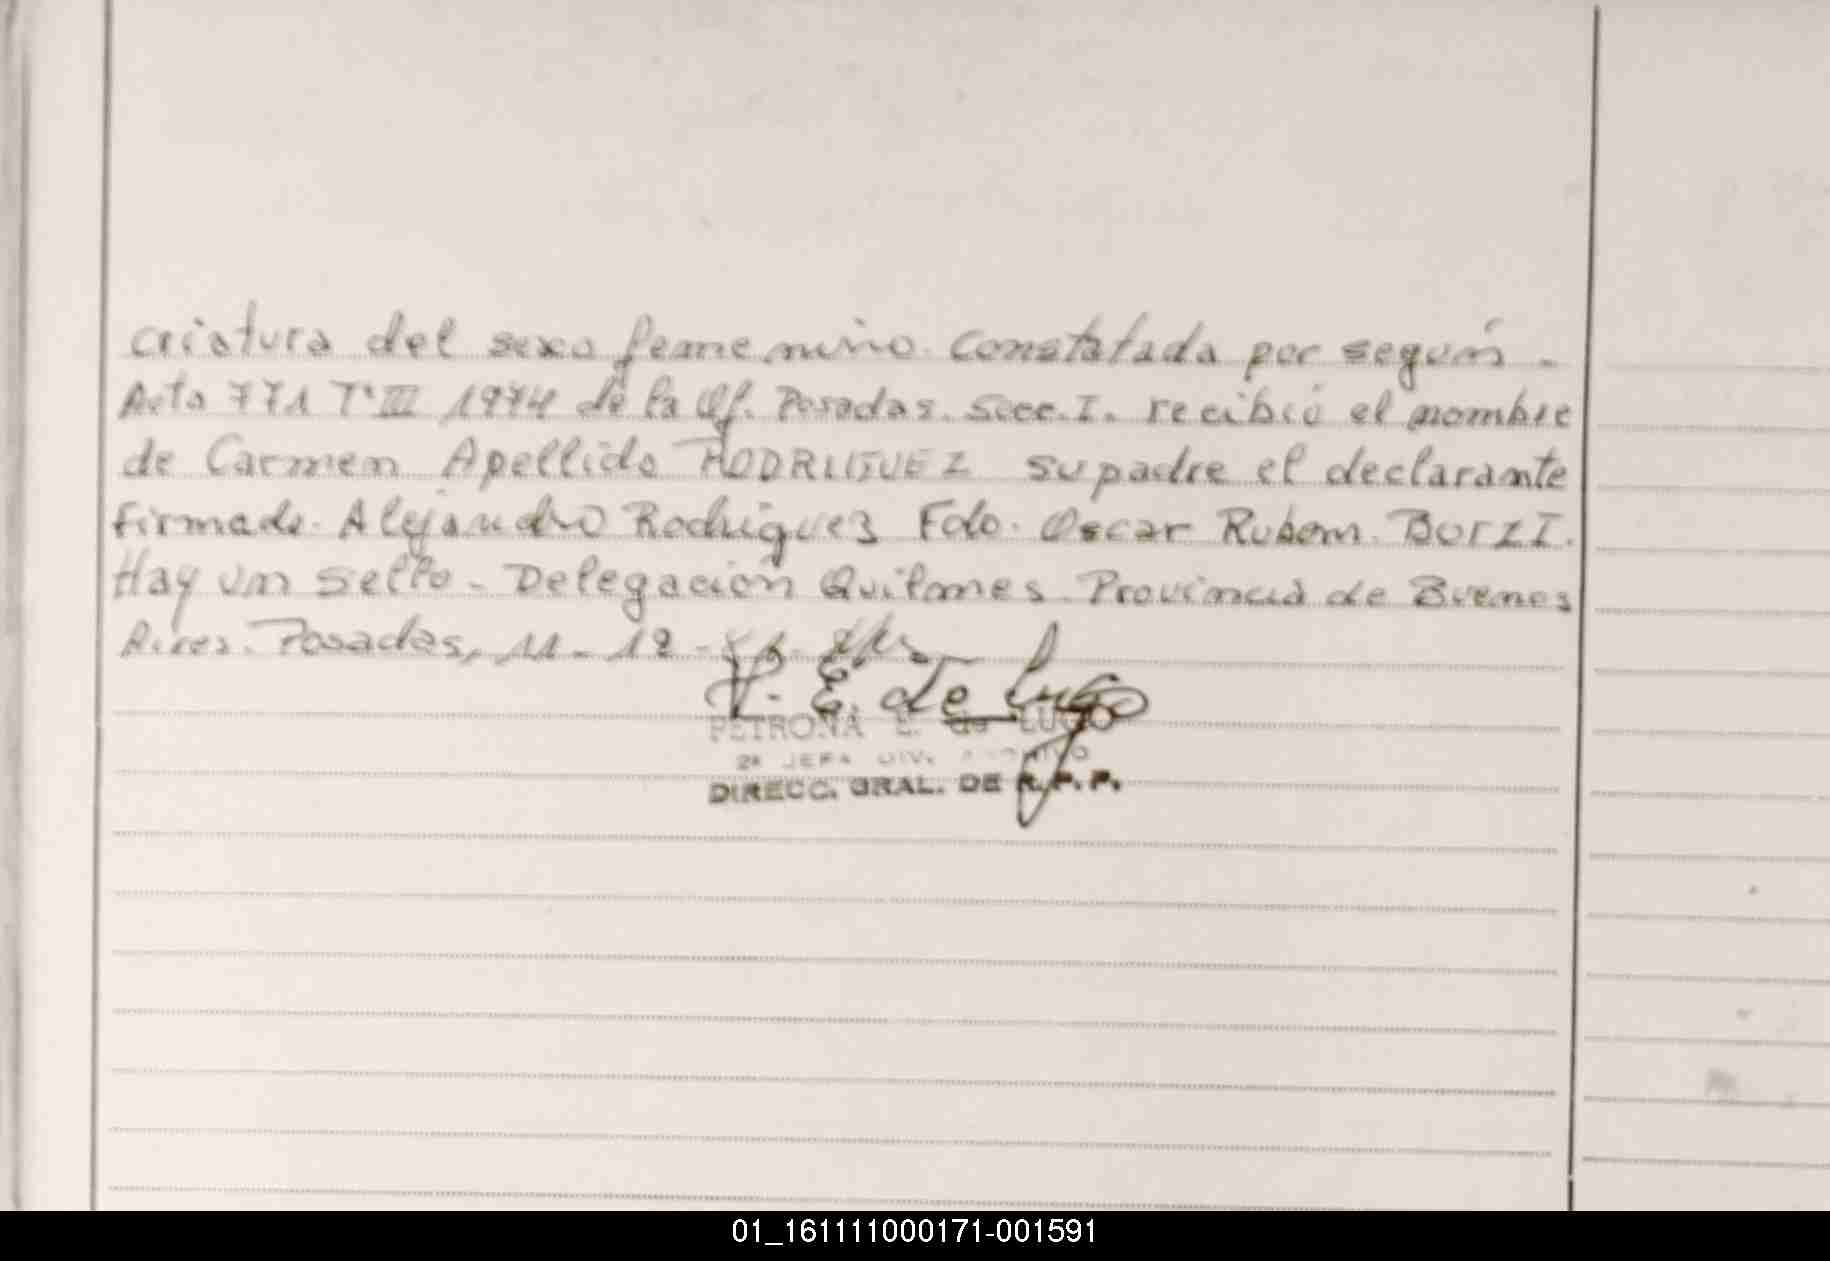 criatura del sexo feme nino. Constatada por según -
Acta 771 Tº III 1974 de la Of. Posadas. Secc. I. recibió el nombre
de Carmen Apellido RODRIGUEZ su padre el declarante
firmado. Alejandro Rodriguez Fdo. Oscar Ruben. BorzI.
Hay un sello - Delegación Quilmes. Provincia de Buenos
Aires. Posadas, 11 - 12 -
P. E. de Lugo
PETRONA E. de LUGO
2ª JEFA DIV. ARCHIVO
DIRECC. GRAL. DE R.P.P.
01_161111000171-001591